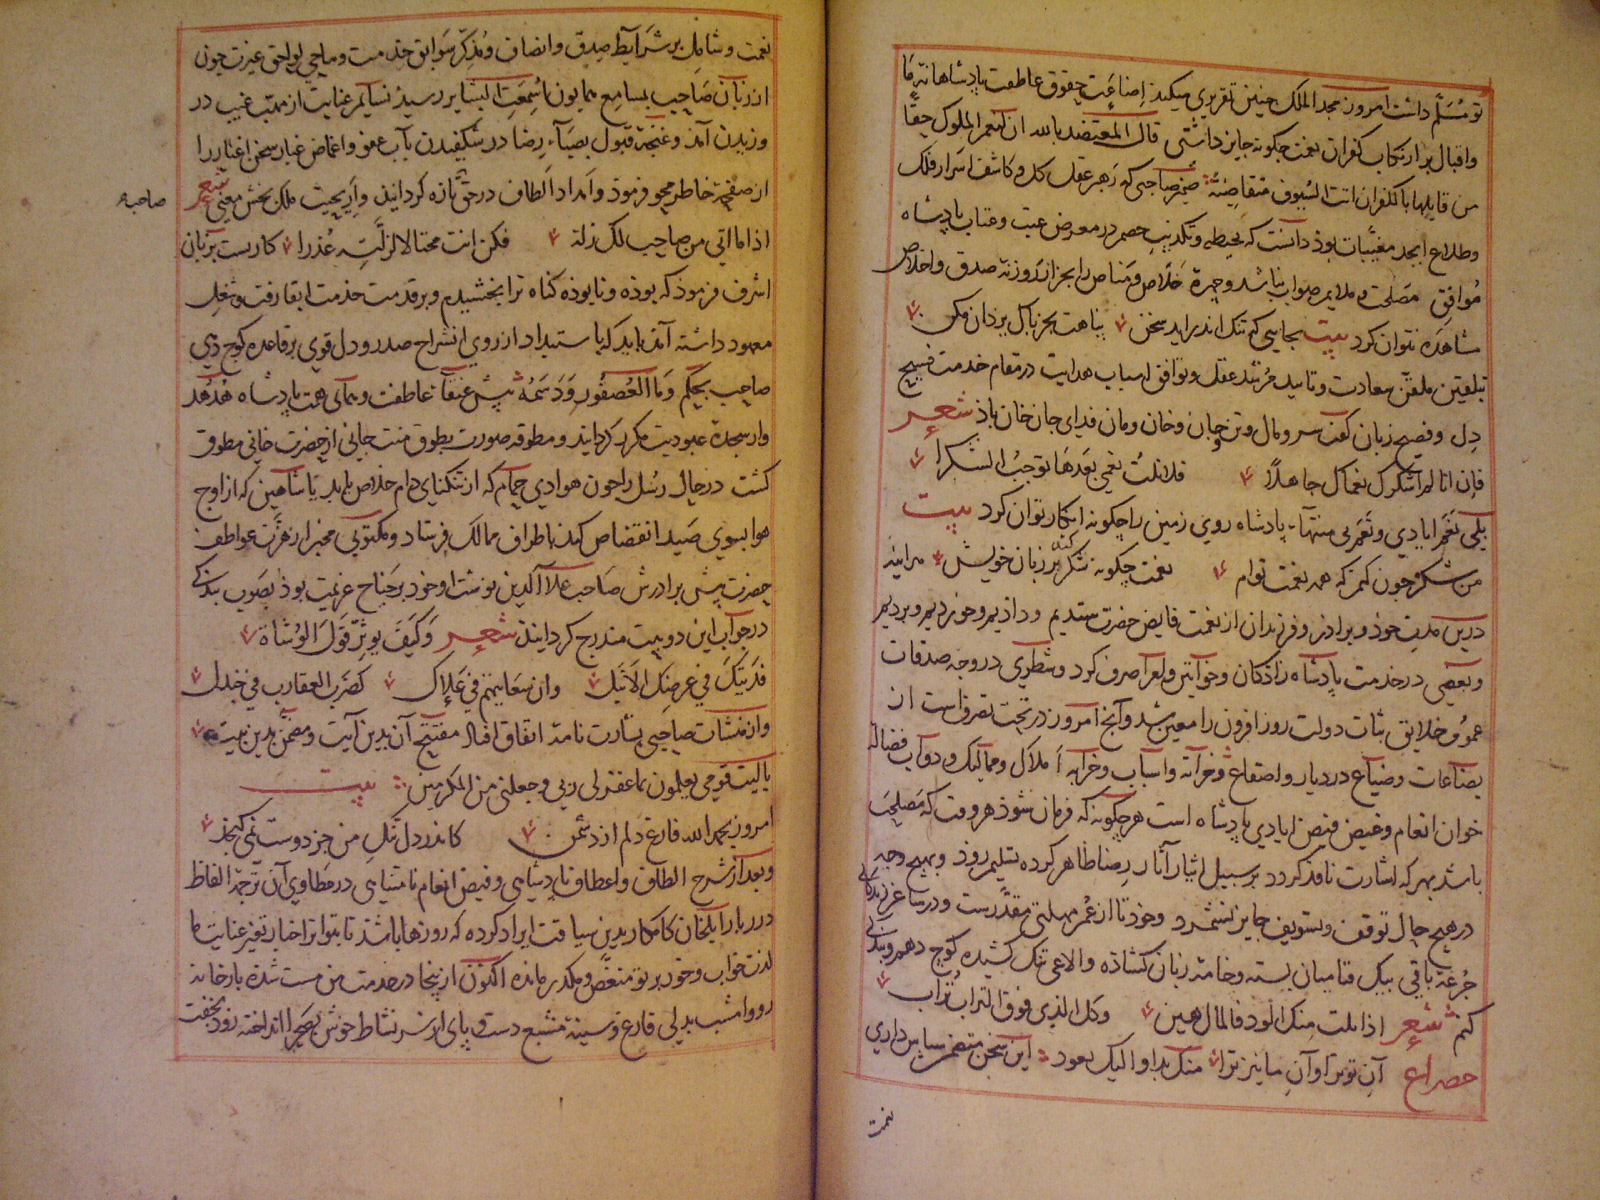 تو مسلم داشت امروز مجد الملک چنین تقریری میکند اضاعت حقوق عاطفت پادشاهانه
واقبال بر ارتکاب کفران نعمت چگونه جایز داشتی قال المعتضد بالله ان نعم الملوک
من قابلها بالکفران انت السیوف متقاضیة ضمیر صاحبی که رهبر عقل کل و کاشف اسرار فلک
وطلاع ابجد مغیبات بود دانست که تخطیه و تکذیب خصم در معرض عیب وعتاب پادشاه
موافق مصلحت و ملایم صواب نباشد وچهرهٔ خلاص ومناص را بجز از روزنهٔ صدق واخلاص
مشاهده نتوان کرد بیت بجایی که تنک اندر اید سخن پناهت بجز پاک یزدان مکن
بتلقین ملقن سعادت وتایید مرشد عقل وتوافق اسباب هدایت در مقام خدمت فسیح
دل وفصیح زبان گفت سر ومال وتن وجان وخان ومان فدای جان خان باد شعر
فإن انا لم اشکرک نعماک جاهلاً فلا نلت نعمی بعدها توجب الشکرا
پادشاه روی زمین را چگونه انکار توان کرد بیت
من شکر چون کنم که همه نعمت توام نعمت چگونه شکر کند بر زبان خویش
درین مدت خود وبرادر وفرزندان از نعمت فایض حضرت ستدیم ودادیم وخوردیم وبردیم
وبعضی در خدمت پادشاه زادکان وخواتین وامرا صرف کرد وشطری در وجه صدقات
عموم خلایق ثبات دولت روز افزون را معین شد وآنچ امروز در تحت تصرف است از
بضاعات وضیاع در دیار واصقاع وخزانه واسباب واملاک وممالیک ودواب
خوان انعام وفیض ایادی پادشاه است هر چگونه که فرمان شود هر وقت که مصلحت
باشد بهر که اشارت نافذ کردد بر سبیل ایثار آثار رضا ظاهر کرده تسلیم رود وبهیچ وجه
در هیچ حال توقف وتسویف جایز نشمرد وخود تا از عمر مهلتی مقدرست ودر ساغر زندکانی
جرعهٔ باقی بیک قبا میان بسته وخامه زبان کشاده کوچ دهم وبندکی
کنم شعر اذا نلت منک الود فالمال هین وکل الذی فوق التراب تراب
مصراع آنِ تو ترا وآنِ ما نیز ترا منک بدا والیک یعود این سخن متضمن سپاس داری
نعمت
نعمت وشامل بر شرایط صدق وانصاف ومذکر سوابق خدمت وماحی لواحق غیرت چون
از زبان صاحب بمسامع همایون رسید نسایم عنایت از مهب غیب در
وزیدن آمد وغنچهٔ قبول بصبآء رضا در شکفیدن بآب عفو واغماض غبار سخن اغیار را
از صفحهٔ خاطر محو فرمود وامداد الطاف در حق تازه کردانید واریحیت ملک بخش معنی شعر
صاحب
اذا ما اتی من صاحب لک زلة فکن انت محتالا لزلته عذرا کار بست بزبان
اشرف فرمود که بوده ونابوده کناه ترا بخشیدیم وبر قدمت خدمت ابقا رفت وشغل
معهود داشته آمد باید که باستبداد از روی انشراح صدر ودل قوی بر قاعده کوچ دهی
صاحب بحکم وما العصفور ودسمه پیش عنقآء عاطفت وهمآی همت پادشاه هدهد
وار سجدهٔ عبودیت مکرر کردانید ومطوقه صورت بطوق منت جانی از حضرت خانی مطوق
کشت در حال رسل را چون هوادی حمام که از تنکنای دام خلاص یابد یا شاهین که از اوج
هوا بسوی صید انقضاض کند باطراف ممالک فرستاد ومکتوبی مخبر از هزت عواطف
حضرت پیش برادرش صاحب علآء الدین نوشت او خود بر جناح عزیمت بود بصوب بندکی
در جواب این دو بیت مندرج کردانید شعر وکیف یؤثر قول الوشاة
فدیتک فی عرضک الاثیل وان سعایتهم فی علاک کضرب العقارب فی جندل
واز منشات صاحبی بشارت نامهٔ اتفاق افتاد مفتتح آن بدین آیت ومضمن بدین بیت
یا لیت قومی یعلمون بما غفر لی ربی وجعلنی من المکرمین بیت
امروز بحمد الله فارغ دلم از دشمن کاندر دل تنک من جز دوست نمی کنجد
وبعد از شرح الطاف واعطاف پادشاهی وفیض انعام نامتناهی در مطاوی آن ترجمهٔ الفاظ
درربار ایلخان کامکار بدین سیاقت ایراد کرده که روزها باشد تا بتواتر اخبار تغیر عنایت ما
لذت خواب وخور بر تو منغص ومکدر مانده اکنون از اینجا در خدمت من مست شده بازخانه
رو وامشب بدلی فارغ وسینهٔ مشبع دست وپای از سر نشاط خوش انداخته زود بخفت